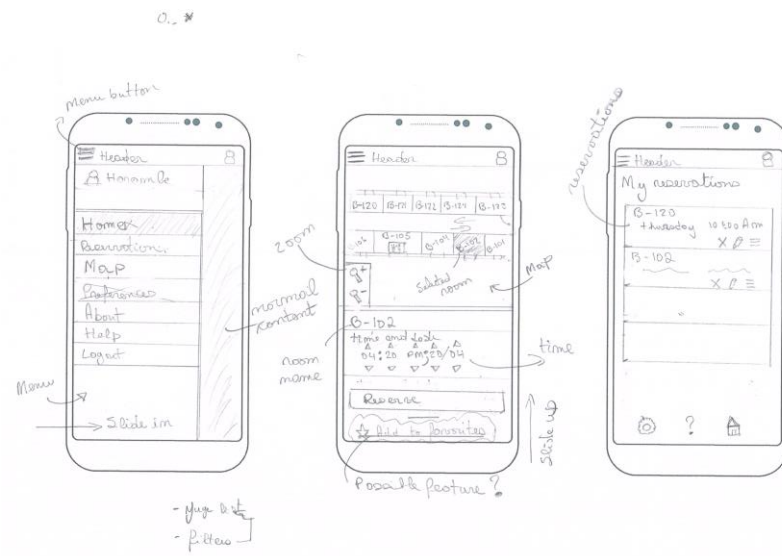 0..*
Menu button
Header
Home
Reservations
Map
Preferences
About
Help
Logout
Menu
Slide in
normal
content
- Huge list
- filters
Header
B-120
B-121
B-122
B-105
B-102
zoom
Selected
room
Map
B-102
room
name
time and date
04:20 PM 20/04
time
Reserve
Add to favourites
Slide up
Possible feature?
reservations
Header
My reservations
B-120
thursday 10:00 Am
B-102
?